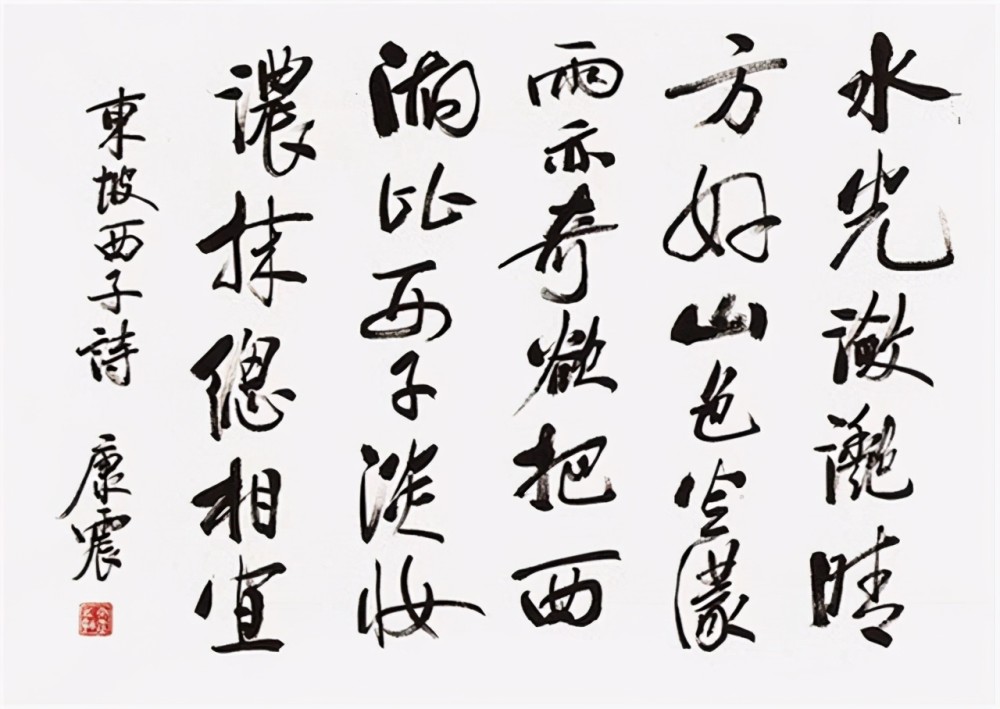 水光瀲灧晴
方好山色空濛
雨亦奇欲把西
湖比西子淡妝
濃抹總相宜
東坡西子詩 康震